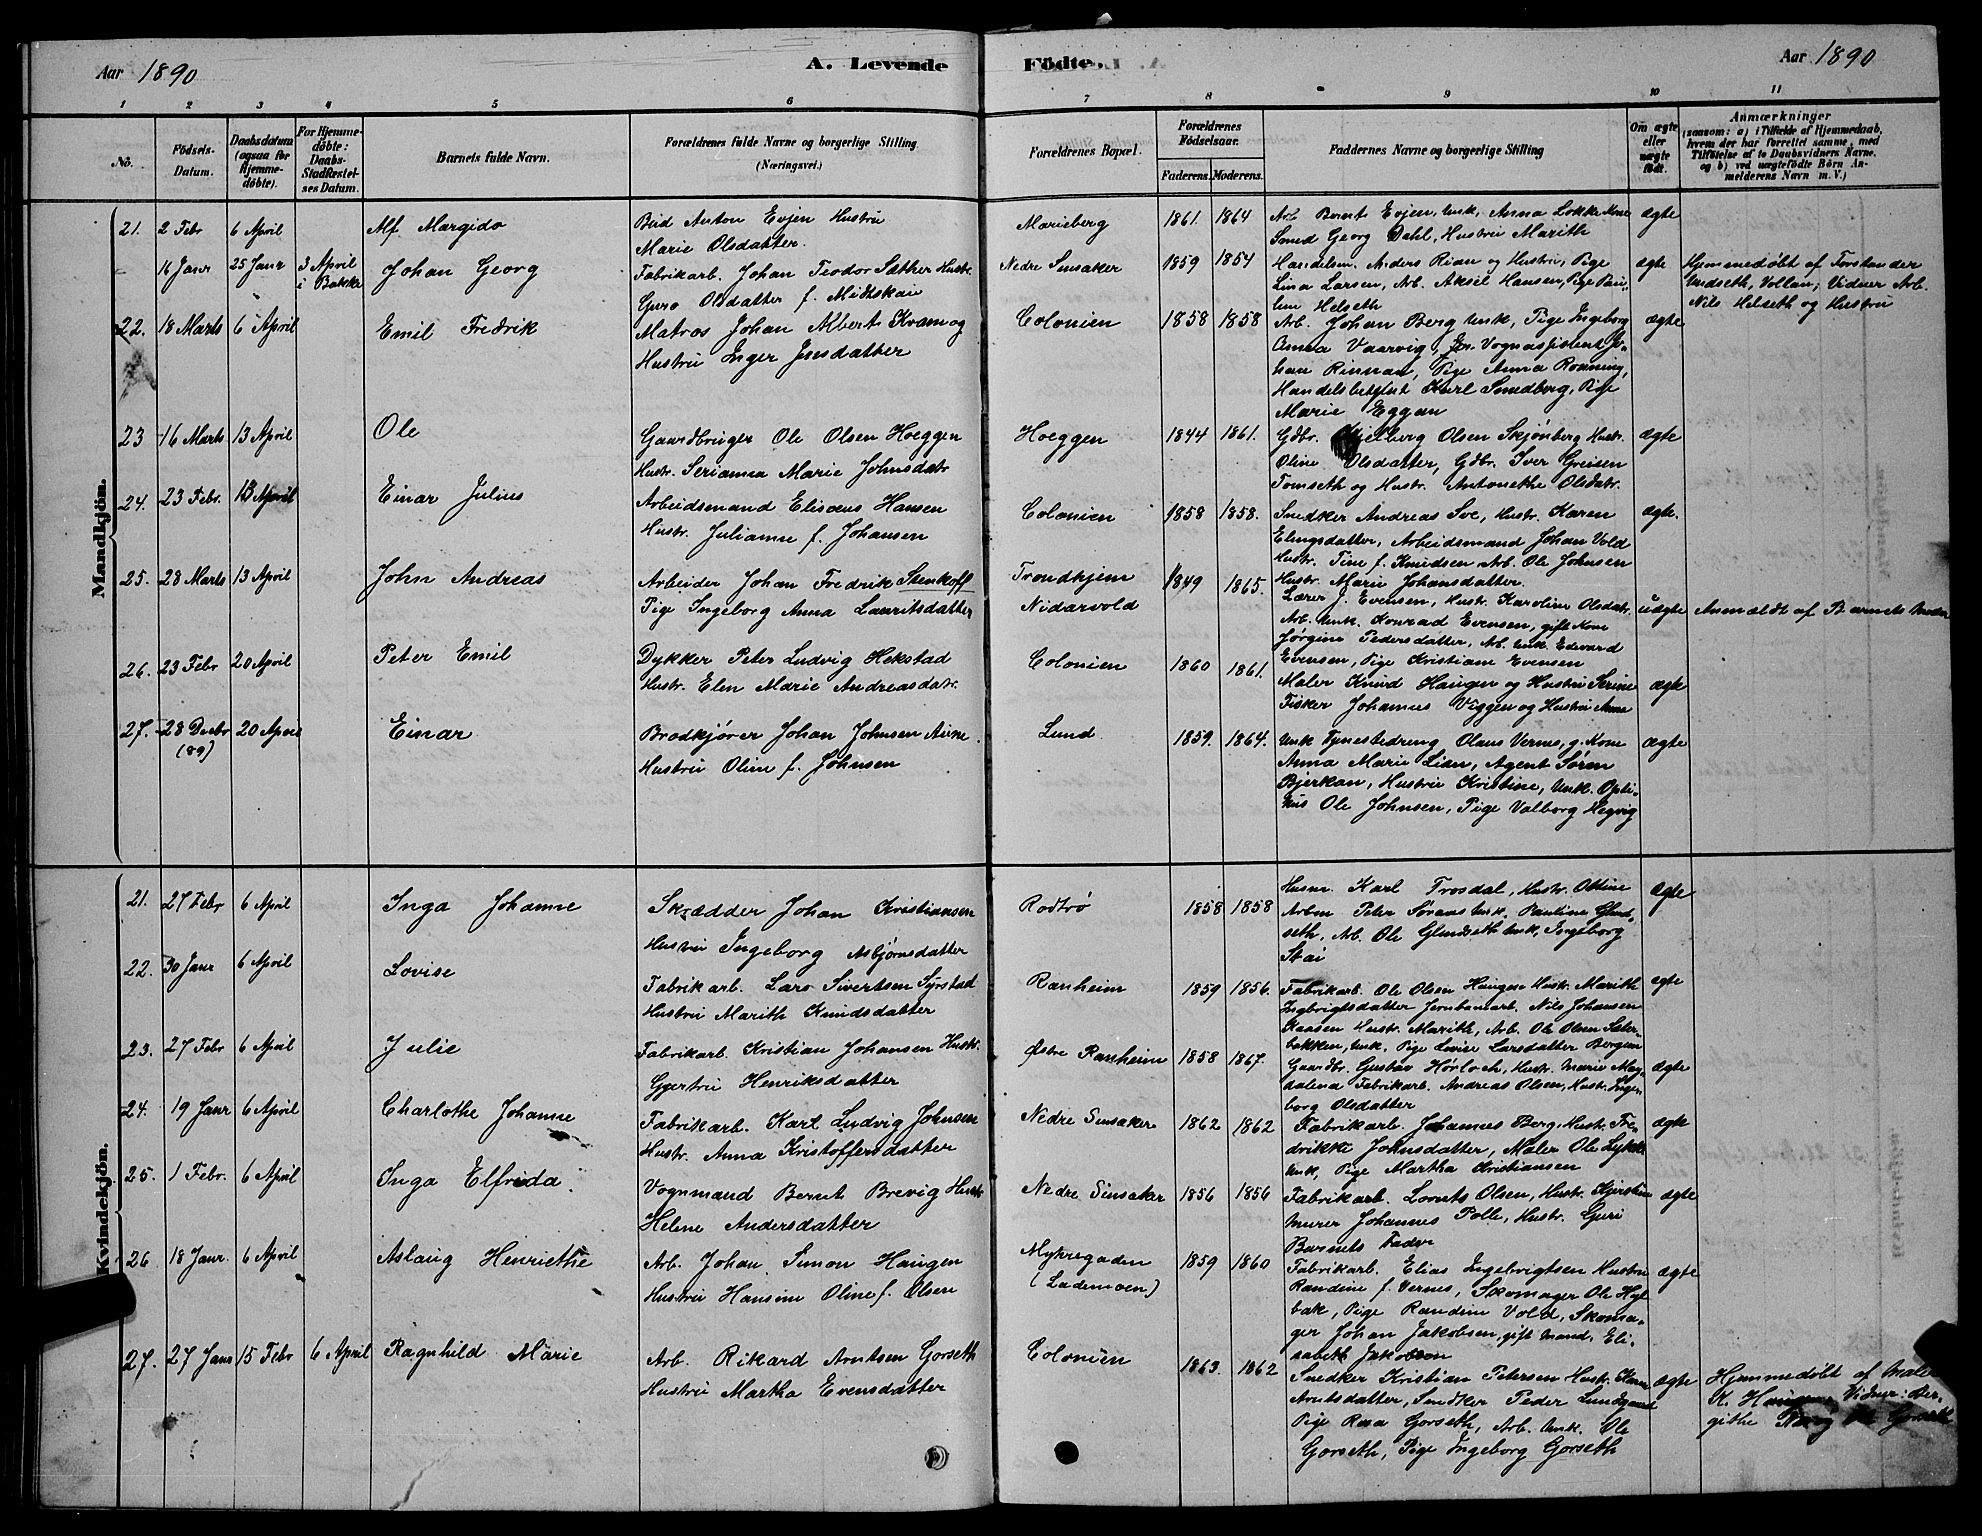 Aar 1890
A. Levende
Födte.
Aar 1890
1 2 3 4 5 6 7 8 9 10 11
No.
Födsels-
Datum.
Daabsdatum
(ogsaa for
Hjemme-
døbte).
For Hjemme-
døbte:
Daabs-
Stadfæstel-
ses Datum.
Barnets fulde Navn.
Forældrenes fulde Navne og borgerlige Stilling
(Næringsvei.)
Forældrenes Bopæl.
Forældrenes
Födselsaar.
Faderens. Moderens.
Faddernes Navne og borgerlige Stilling
Om ægte
eller
uægte
født.
Anmærkninger
(saasom: a) i Tilfælde af Hjemmedaab,
hvem der har forrettet samme, med
Tilföielse af to Daabsvidners Navne.
og b) ved uægtefödte Börn An-
melderens Navn m. V.)
Mandkjön.
21. 2 Febr 6 April Alf Margido
Anton Evjen Hustru
Marie Olsdatter.
Marieberg 1861. 1864
Arb Bernt Evjen, Unk, Anna Løkke Kone
Smed Georg Dahl, Hustru Marith
ægte
16 Janr 25 Janr 3 April
i Bakke
Johan Georg
Fabrikarb. Johan Teodor Sæther Hustr.
Guro Olsdatter f. Midtskai
Nedre Sinsaker 1859 1854
Handelsm. Anders Rian og Hustru, Pige
Lina Larsen, Arb. Aksel Hansen, Pige Pau-
line Helseth
ægte
Hjemmedøbt af Forstander
Undseth, Vollan; Vidner Arb.
Nils Helseth og Hustru
22. 18 Marts 6 April Emil Fredrik
Matros Johan Albert Kvam og
Hustru Inger Jensdatter
Colonien 1858 1858
Arb. Johan Berg Unk, Pige Ingeborg
Anna Vaarvig, Vognassistent Jo-
han Rinnan, Pige Anna Rønning,
Handelsbetjent Karl Smedberg, Pige
Marie Eggan
ægte
23 16 Marts 13 April Ole
Gaardbruger Ole Olsen Hoeggen
Hustr. Serianna Marie Johnsdatr
Hoeggen 1844 1861.
Gdbr. Olsen Skjønberg Hustr.
Oline Olsdatter, Gdbr. Iver Greisen
Tomseth og Hustr. Antonethe Olsdatr.
ægte
24. 23 Febr. 13 April Einar Julius
Arbeidsmand Elisæus Hansen
Hustr. Julianne f. Johansen
Colonien 1858 1858.
Snedker Andreas Sve, Hustr. Karen
Elingsdatter, Arbeidsmand Johan Vold
Hustr. Tine f. Knudsen Arb. Ole Johnsen
Hustr. Marie Johansdatter.
ægte.
25. 28 Marts 13 April John Andreas
Arbeider Johan Fredrik Stenkoff
Pige Ingeborg Anna Lauritsdatter
Trondhjem
Nidarvold
1849 1865.
Lærer J. Evensen, Hustr. Karoline Olsdatr.
Arb. Unk. Konrad Evensen, gift Kone
Jørgine Pedersdatter, Arb. Unk. Edevard
Evensen, Pige Kristiane Evensen
uægte
Anmeldt af Barnets Moder
26. 23 Febr 20 April Peter Emil
Dykker Peter Ludvig Hekstad
Hustr. Elen Marie Andreasdatr.
Colonien 1860 1861.
Maler Knud Haugen og Hustru Serine
Fisker Johannes Viggen og Hustru Anne
ægte
27. 28 Decbr
(89)
20 April Einar
Brødkjører Johan Johnsen Aune
Hustru Oline f. Johnsen
Lund 1859. 1864.
Unk Tjenestedreng Olaus Vernes, g. Kone
Anna Marie Lian, Agent Søren
Bjerkan, Hustru Kristine, Unk. Opti-
kus Ole Johnsen, Pige Valborg Hegvig
ægte
Kvindekjön.
21. 27 Febr 6 April Inga Johanne
Skrædder Johan Kristiansen
Hustru Ingeborg Asbjørnsdatter
Rodtrø 1858 1858
Husm. Karl Trosdal, Hustr. Oline
Arbm Peter Sørans Unk. Pauline Glæd-
seth, Arb. Ole Glædseth Unk, Ingeborg
Stai
ægte
22. 30 Janr 6 April Lovise
Fabrikarb. Lars Sivertsen Syrstad
Hustru Marith Knudsdatter
Ranheim 1859 1856.
Fabrikarb. Ole Olsen Haugen Hustr. Marith
Ingbrigtsdatter Jernbanearb. Nils Johansen
Kaasen Hustr. Marith, Arb. Ole Olsen Sæter-
bakken, Unk. Pige Lovise Larsdatter Bergem
ægte
23. 27 Febr 6 April Julie
Fabrikarb. Kristian Johansen Hustr.
Gjertru Henriksdatter
Østre Ranheim 1858 1867.
Gaardbr. Gustav Hørløch, Hustr. Marie Mag-
dalena Fabrikarb. Andreas Olsen, Hustr. Inge-
borg Olsdatter
ægte
24. 19 Janr 6 April Charlothe Johanne
Fabrikarb. Karl Ludvig Johnsen
Hustr. Anna Kristoffersdatter
Nedre Sinsaker 1862 1862
Fabrikarb. Johannes Berg, Hustr. Fre-
drikke Johnsdatter, Maler Ole Lykke
Unk, Pige Martha Kristiansen
ægte
25. 1 Febr. 6 April Inga Elfrida
Vognmand Bernt Brevig Hustr
Helene Andersdatter
Nedre Sinsaker 1856 1856
Fabrikarb. Lornts Olsen, Hustr. Kjerstine
Murer Johannes Polle, Hustr. Guri
Barnets Fader
ægte
26 18 Janr. 6 April Aslaug Henriette
Arb. Johan Simon Haugen
Hustru Hansine Oline f. Olsen
Mykregaden
(Lademoen)
1859 1860
Fabrikarb. Elias Ingebrigtsen Hustru
Randine f. Vernes, Skomager Ole Hyl-
bak, Pige Randine Vold, Skoma-
ger Johan Jakobsen, gift Mand, Eli-
sabeth Jakobsen
ægte
27. 27 Janr 15 Febr 6 April Ragnhild Marie
Arb. Rikard Arntsen Gorseth
Hustru Martha Evensdatter
Colonien 1863. 1862
Snedker Kristian Petersen Hustr. Karen
Arntsdatter, Snedker Peder Lundgaard
Pige Rasa Gorseth, Arb. Unk. Ole
Gorseth, Pige Ingeborg Gorseth
ægte
Hjemmedøbt af Maler
K. Haugen, Vidner: Ber-
githe Gorseth